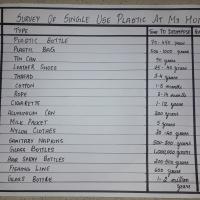 SURVEY OF SINGLE USE PLASTIC AT MY HOM
TYPE TIME TO DECOMPOSE
PLASTIC BOTTLE 70-450 years
PLASTIC BAG 500-1000 years
TIN CAN 50 years
LEATHER SHOES 25-40 years
THREAD 3-4 years
COTTON 1-5 months
ROPE 3-14 months
CIGARETTE 1-12 years
ALUMINIUM CAN 200 years
MILK PACKET 5 years
NYLON CLOTHES 30-40 years
SANITARY NAPKINS 500-800 years
GLASS BOTTLES 1,000,000 years
HAIR SPRAY BOTTLES 200-500 years
FISHING LINE 600 years
GLASS BOTTLE 1-2 million years